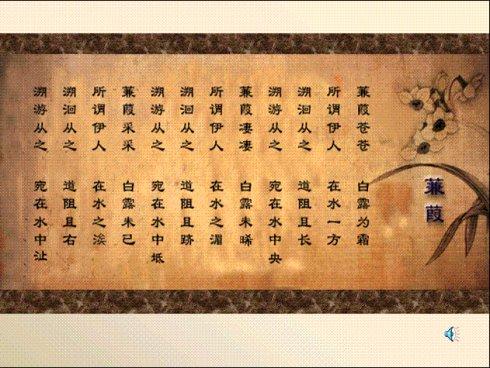 蒹葭
蒹葭苍苍 白露为霜
所谓伊人 在水一方
溯洄从之 道阻且长
溯游从之 宛在水中央
蒹葭凄凄 白露未晞
所谓伊人 在水之湄
溯洄从之 道阻且跻
溯游从之 宛在水中坻
蒹葭采采 白露未已
所谓伊人 在水之涘
溯洄从之 道阻且右
溯游从之 宛在水中沚